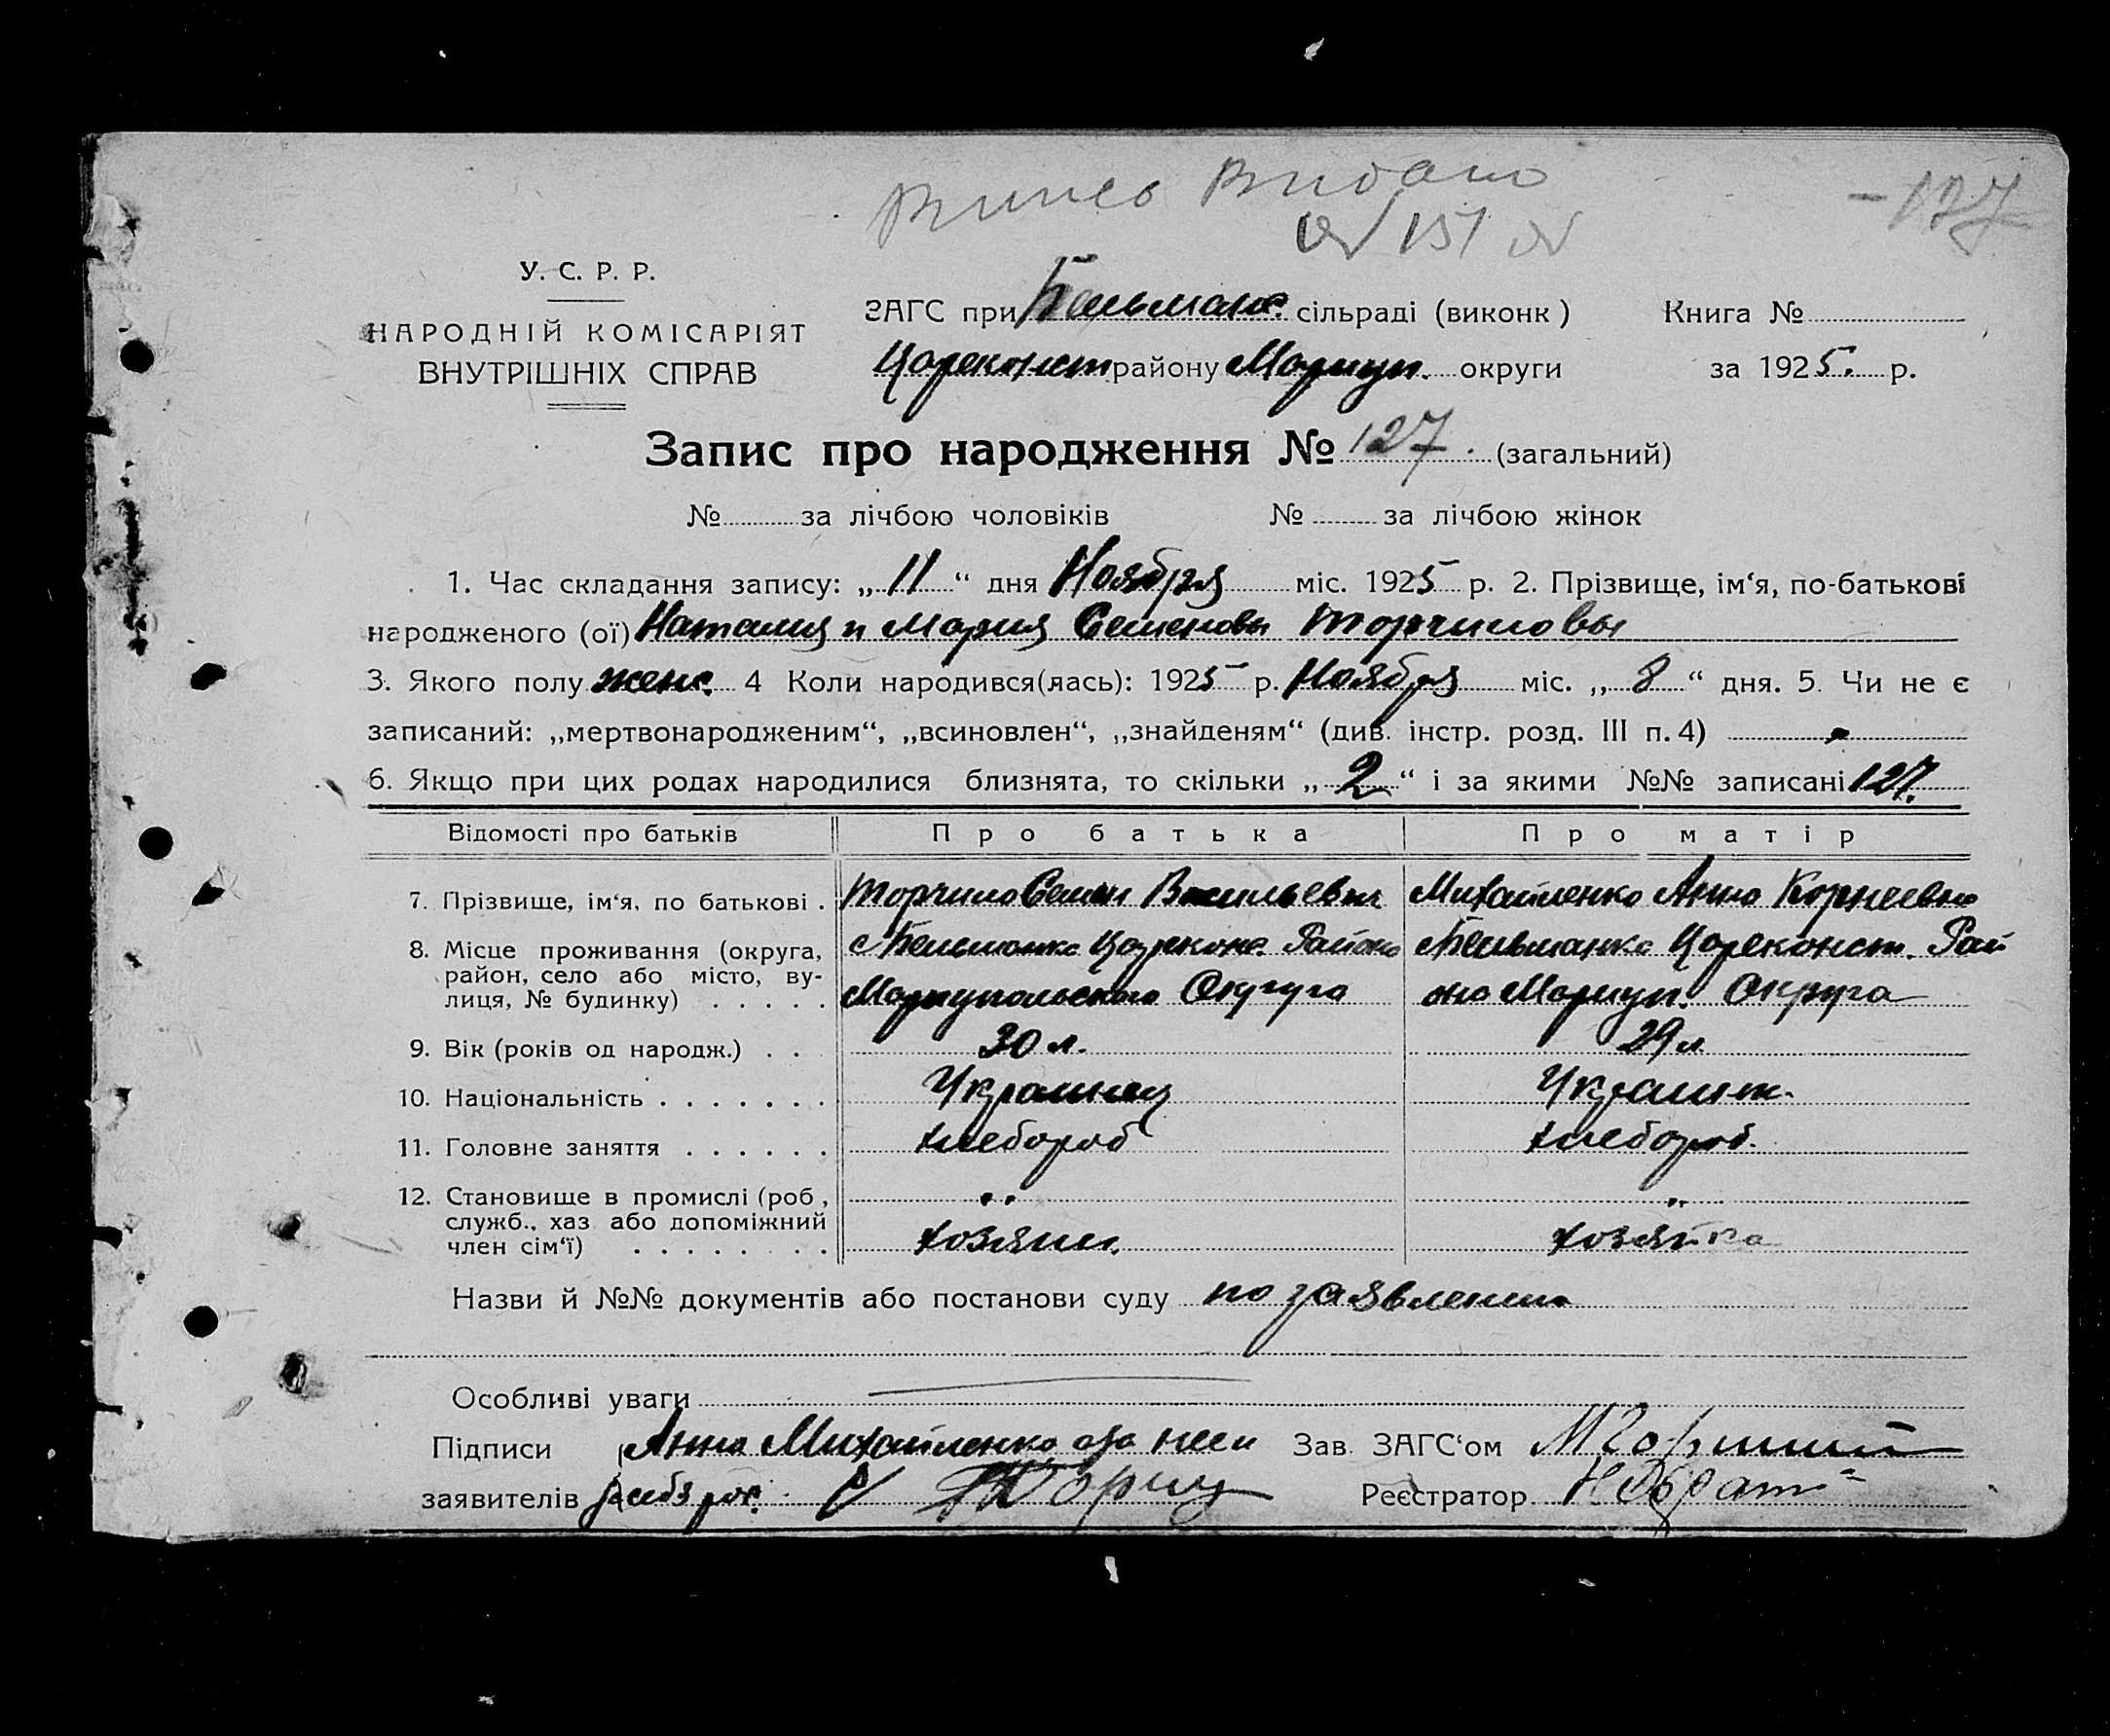 Випсь Видано
№ 151
-127
У. С. Р. Р.
НАРОДНІЙ КОМІСАРІЯТ
ВНУТРІШНІХ СПРАВ
ЗАГС при Бельманс. сільраді (виконк)
Цареконст району Мариуп. округи
Книга №
за 1925. р.
Запис про народження № 127. (загальний)
№ за лічбою чоловіків № за лічбою жінок
1. Час складання запису: „11“ дня Ноября міс. 1925 р. 2. Прізвище, ім‘я, по-батькові
народженого (ої) Наталия и Мария Семеновы Торчиновы
3. Якого полу женс. 4 Коли народився(лась): 1925 р. Ноября міс. „8“ дня. 5. Чи не є
записаний: „мертвонародженим“, „всиновлен“, „знайденям“ (див. інстр. розд. III п. 4)
6. Якщо при цих родах народилися близнята, то скільки „2“ і за якими №№ записані 127.
Відомості про батьків Про батька Про матір
7. Прізвище, ім‘я, по батькові . Торчино Семен Васильевич Михайленко Анна Корнеевна
8. Місце проживання (округа, с Бельманка Цареконс. Района с Бельманка Цареконст. Рай
район, село або місто, ву-
лиця, № будинку) . . . . . Мариупольского Округа она Мариуп. Округа
9. Вік (років од народж.) . . 30 л. 29 л
10. Національність . . . . . . . Украинец Украинк.
11. Головне заняття . . . . . . Хлебороб Хлебороб.
12. Становище в промислі (роб, „ „
служб., хаз або допоміжний
член сім‘ї) . . . . . . . . Хозяин. Хозяйка
Назви й №№ документів або постанови суду по заявлению
Особливі уваги
Підписи Анна Михайленко а за Зав. ЗАГС‘ом
заявителів Реєстратор